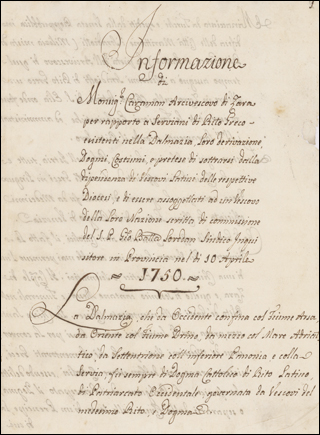 Informazione
di
Monsig.r Caraman Arcivescovo di Zara
per rapporto a Serviani di Rito Greco
esistenti nella Dalmazia, loro derivazione,
Dogmi, Costumi, e pretese di sottrarsi dalla
dipendenza di Vescovi Latini delle respettive
Diocesi, e di essere assoggettati ad un Vescovo
della loro Nazione scritta di commissione
del S. P. Gio. Batta
in Provincia nel dì 10 Aprile
1750.
La Dalmazia, che da Occidente confina col Fiume Arsa,
da Oriente col Fiume Drino, da mezzo col Mare Adriati
tico, da Settentrione coll'inferiore Panonia e colla
Servia, fù sempre di Dogma Cattolico di Rito Latino,
di Patriarcato Occidentale, governata da Vescovi del
medesimo Rito, e Dogma.